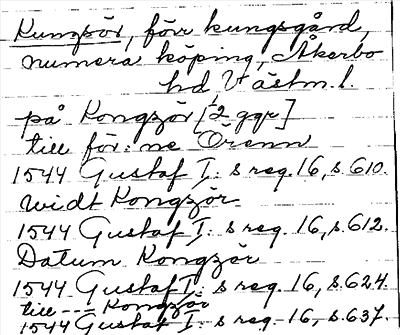 Kungsör, förr kungsgård,
numera köping, Åkerbo
hd, Västm. l.
på Kongzör [2 ggr]
till för: ne Örenn
1544 Gustaf I: s reg. 16, s. 610.
widt Kongzör
1544 Gustaf I: s reg. 16, s. 612.
Datum Kongzör
1544 Gustaf I: s reg. 16, s. 624.
till --- Kongzör
1544 Gustaf I: s reg. 16, s. 637.